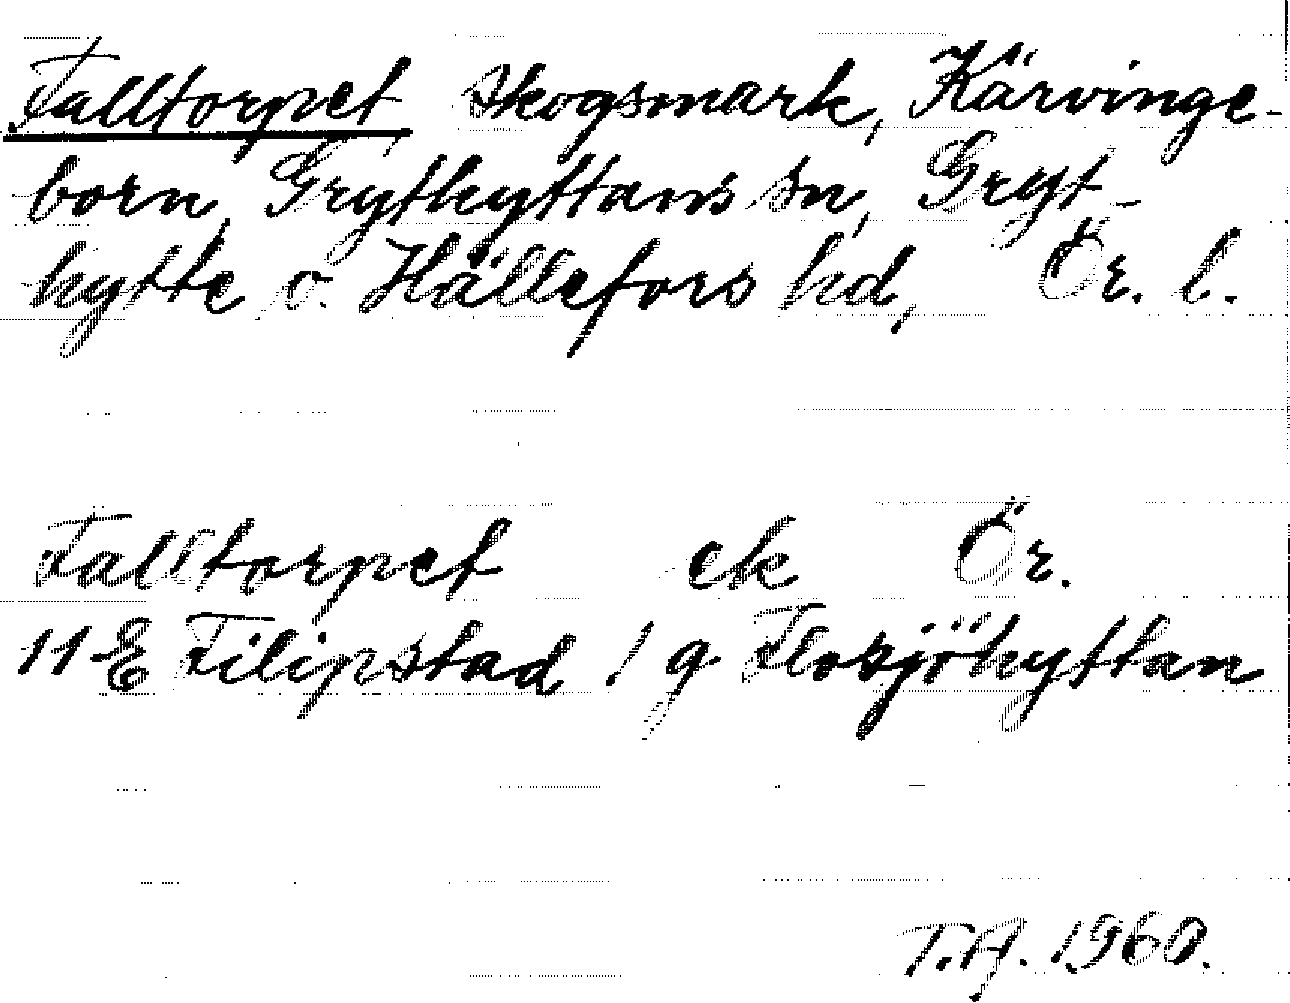 Falltorpet skogsmark, Kärvinge-
born, Grythyttans sn, Gryt-
hytte o. Hällefors hd, Ör. l.
Falltorpet ek Ör.
11 E Filipstad / g Flosjöhyttan
T.A. 1960.